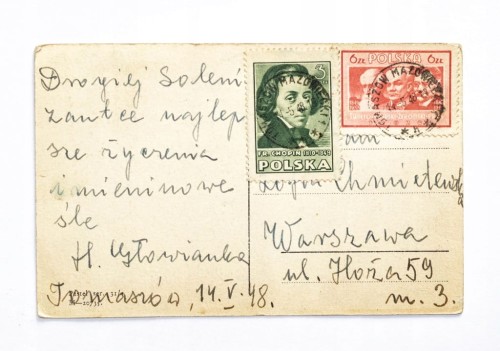 Drogiej Soleni
zantce najlep
sze życzenia
imieninowe
śle
H. Głowianka
Tomaszów, 14.V.48.
5
FR. CHOPIN 1810-1849
POLSKA
6zł. POLSKA 6zł.
TOMASZÓW MAZOWIECKI
Zofia Chmielewska
Warszawa
ul. Hoża 59
m. 3.